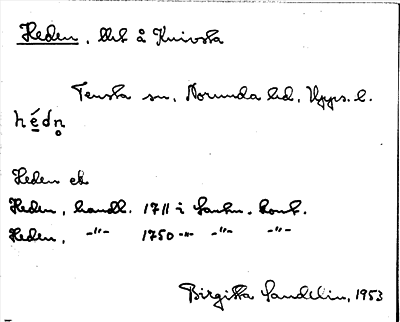 Heden, lht å Knivsta
Tensta sn, Norunda hd, Upps. l.
hédn̥
Heden ek
Heden, handl. 1711 i Lantm. kont.
Heden, -"- 1750 -"- -"- -"-
Birgitta Sandelin, 1953